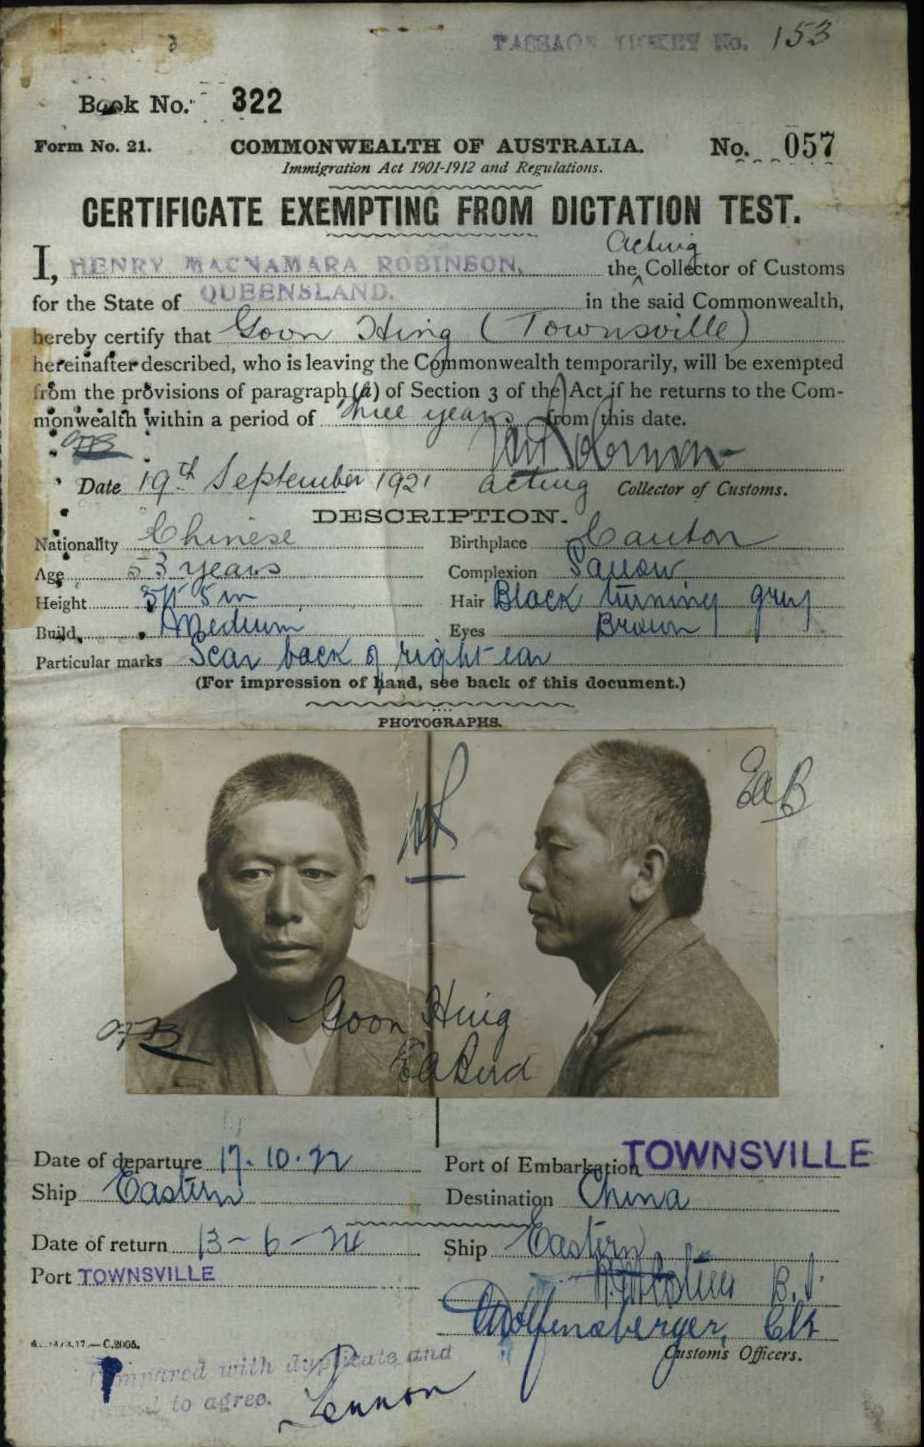 PASSAGE TICKET No. 153
Book No. 322
Form No. 21. COMMONWEALTH OF AUSTRALIA. No. 057
Immigration Act 1901-1912 and Regulations.
CERTIFICATE EXEMPTING FROM DICTATION TEST.
Acting
I, HENRY MACNAMARA ROBINSON, the Collector of Customs
for the State of QUEENSLAND. in the said Commonwealth,
hereby certify that Goon Hing (Townsville)
hereinafter described, who is leaving the Commonwealth temporarily, will be exempted
from the provisions of paragraph (a) of Section 3 of the Act if he returns to the Com-
monwealth within a period of three years from this date.
Date 19th September 1921 acting Collector of Customs.
DESCRIPTION.
Nationality Chinese Birthplace Canton
Age 53 years Complexion Sallow
Height 5ft 5in Hair Black turning grey
Build Medium Eyes Brown
Particular marks Scar back of right ear
(For impression of hand, see back of this document.)
PHOTOGRAPHS.
EaB
Goon Hing
Ea Bird
Date of departure 17.10.22 Port of Embarkation TOWNSVILLE
Ship Eastern Destination China
Date of return 13-6-24 Ship Eastern
Port TOWNSVILLE
B.I.
Wolfensberger, Clk
Customs Officers.
C.2005.
Compared with duplicate and
found to agree.
Lennon